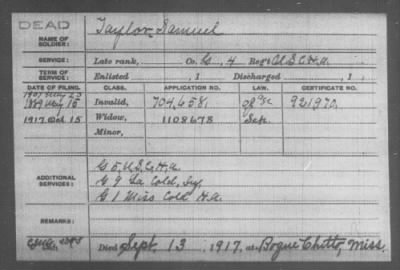 DEAD
NAME OF SOLDIER: Taylor, Samuel
SERVICE: Late rank, Co. G, 4 Reg't U.S.C.H.A.
TERM OF SERVICE: Enlisted , 1 Discharged , 1
DATE OF FILING. CLASS. APPLICATION NO. LAW. CERTIFICATE NO.
1889 May 15 Invalid, 704,658 921970
1917 Oct 15 Widow, 1108678
Minor,
ADDITIONAL SERVICES: G 5 U.S.C.H.A.
G 9 La Cold. Inf.
G 1 Miss Cold H.A.
REMARKS:
Died Sept. 13 1917, at Bogue Chitto, Miss.